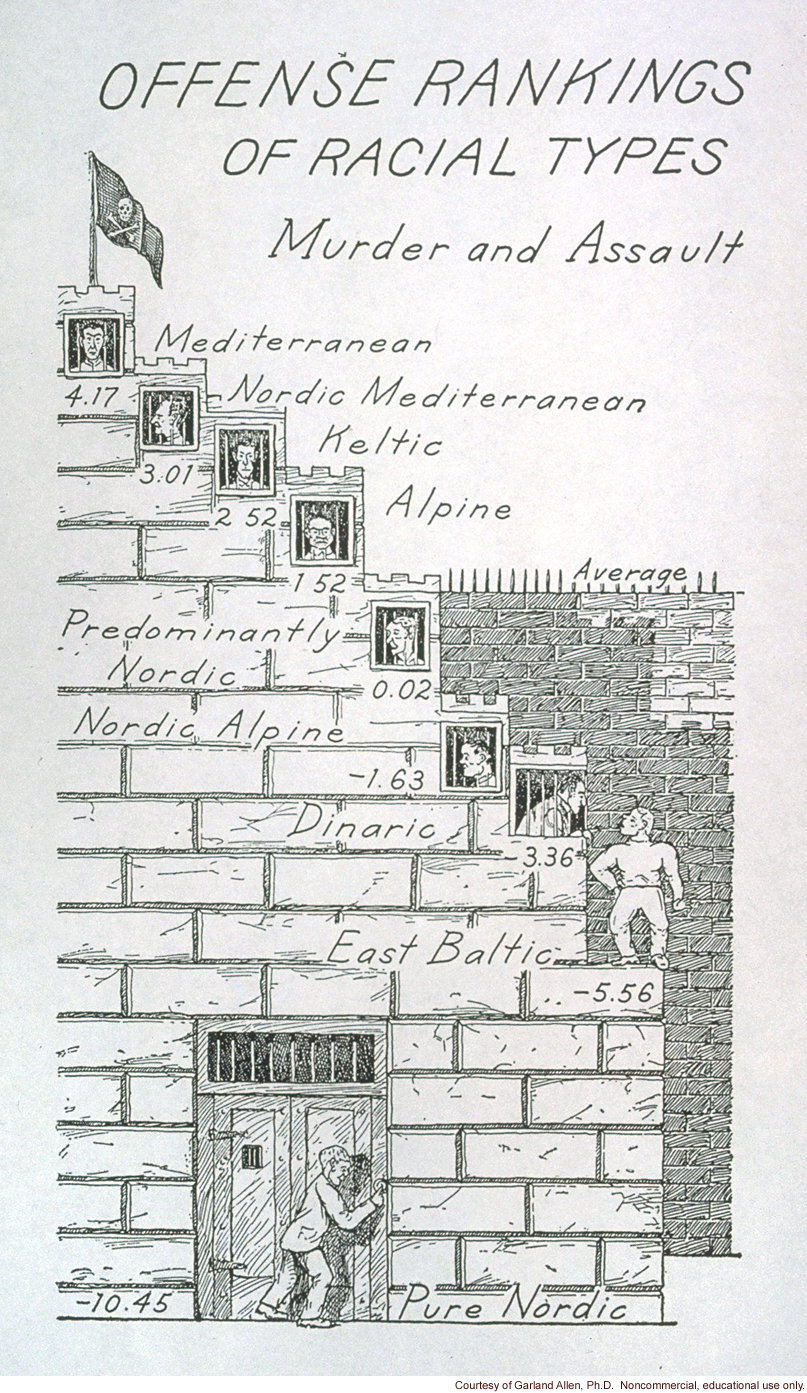 OFFENSE RANKINGS
OF RACIAL TYPES
Murder and Assault
Mediterranean
4.17
Nordic Mediterranean
3.01
Keltic
2 52
Alpine
1 52
Average
Predominantly
Nordic
0.02
Nordic Alpine
-1.63
Dinaric
-3.36
East Baltic
-5.56
-10.45
Pure Nordic
Courtesy of Garland Allen, Ph.D. Noncommercial, educational use only.